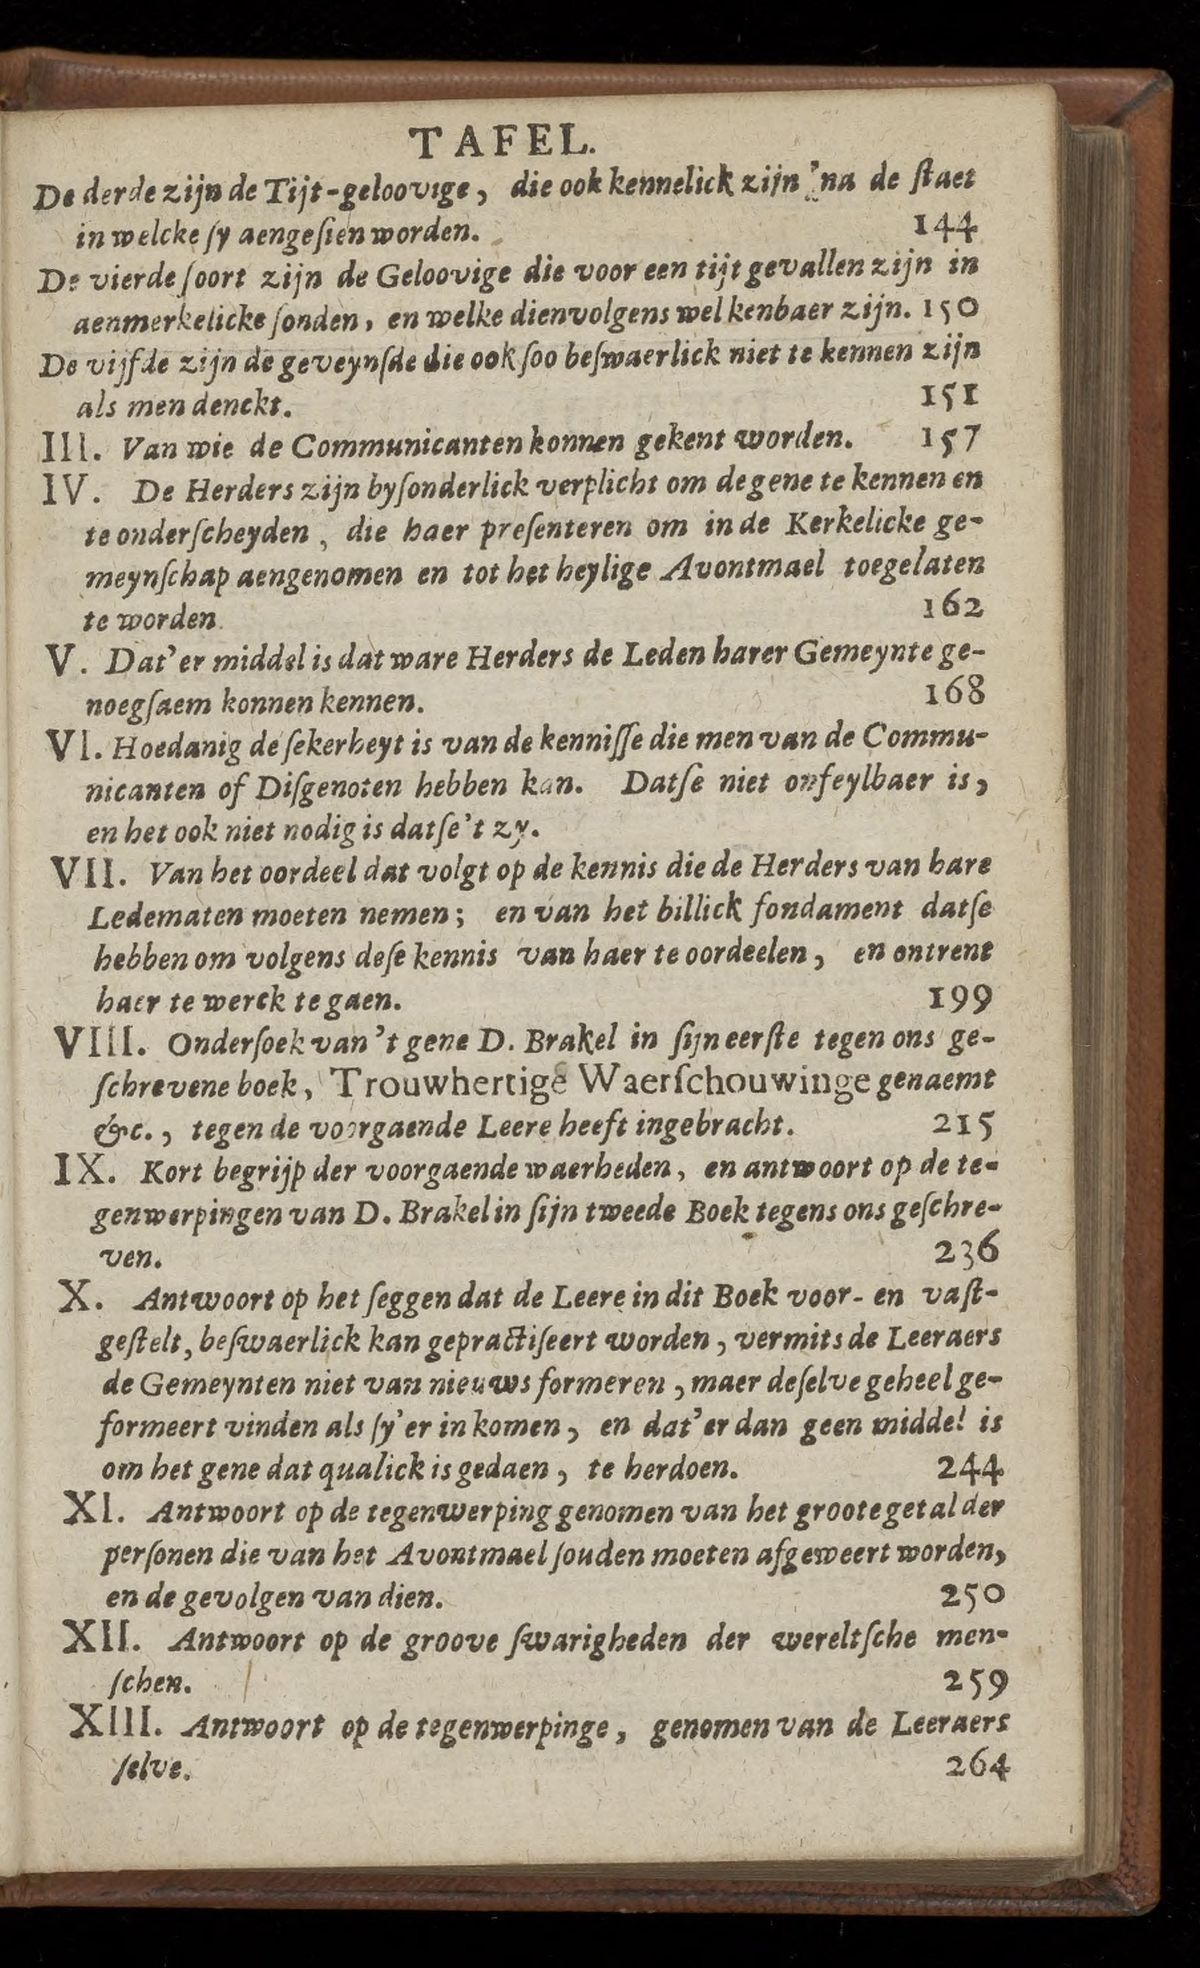 TAFEL.
De derde zijn de Tijt-geloovige, die ook kennelick zijn na de ſtaet
in welcke ſy aengeſien worden. 144
De vierde ſoort zijn de Geloovige die voor een tijt gevallen zijn in
aenmerkelicke ſonden, en welke dienvolgens wel kenbaer zijn. 150
De vijfde zijn de geveynſde die ook ſoo beſwaerlick niet te kennen zijn
als men denckt. 151
III. Van wie de Communicanten konnen gekent worden. 157
IV. De Herders zijn byſonderlick verplicht om de gene te kennen en
te onderſcheyden, die haer preſenteren om in de Kerkelicke ge-
meynſchap aengenomen en tot het heylige Avontmael toegelaten
te worden. 162
V. Dat'er middel is dat ware Herders de Leden harer Gemeynte ge-
noegſaem konnen kennen. 168
VI. Hoedanig de ſekerheyt is van de kenniſſe die men van de Commu-
nicanten of Diſgenoten hebben kan. Datſe niet onfeylbaer is,
en het ook niet nodig is datſe't zy.
VII. Van het oordeel dat volgt op de kennis die de Herders van hare
Ledematen moeten nemen; en van het billick fondament datſe
hebben om volgens deſe kennis van haer te oordeelen, en ontrent
haer te werck te gaen. 199
VIII. Onderſoek van 't gene D. Brakel in ſijn eerſte tegen ons ge-
ſchrevene boek, Trouwhertige Waerſchouwinge genaemt
&c., tegen de voorgaende Leere heeft ingebracht. 215
IX. Kort begrijp der voorgaende waerheden, en antwoort op de te-
genwerpingen van D. Brakel in ſijn tweede Boek tegens ons geſchre-
ven. 236
X. Antwoort op het ſeggen dat de Leere in dit Boek voor- en vaſt-
geſtelt, beſwaerlick kan gepractiſeert worden, vermits de Leeraers
de Gemeynten niet van nieuws formeren, maer deſelve geheel ge-
formeert vinden als ſy'er in komen, en dat'er dan geen middel is
om het gene dat qualick is gedaen, te herdoen. 244
XI. Antwoort op de tegenwerping genomen van het groote getal der
perſonen die van het Avontmael ſouden moeten afgeweert worden,
en de gevolgen van dien. 250
XII. Antwoort op de groove ſwarigheden der wereltſche men-
ſchen. 259
XIII. Antwoort op de tegenwerpinge, genomen van de Leeraers
ſelve. 264